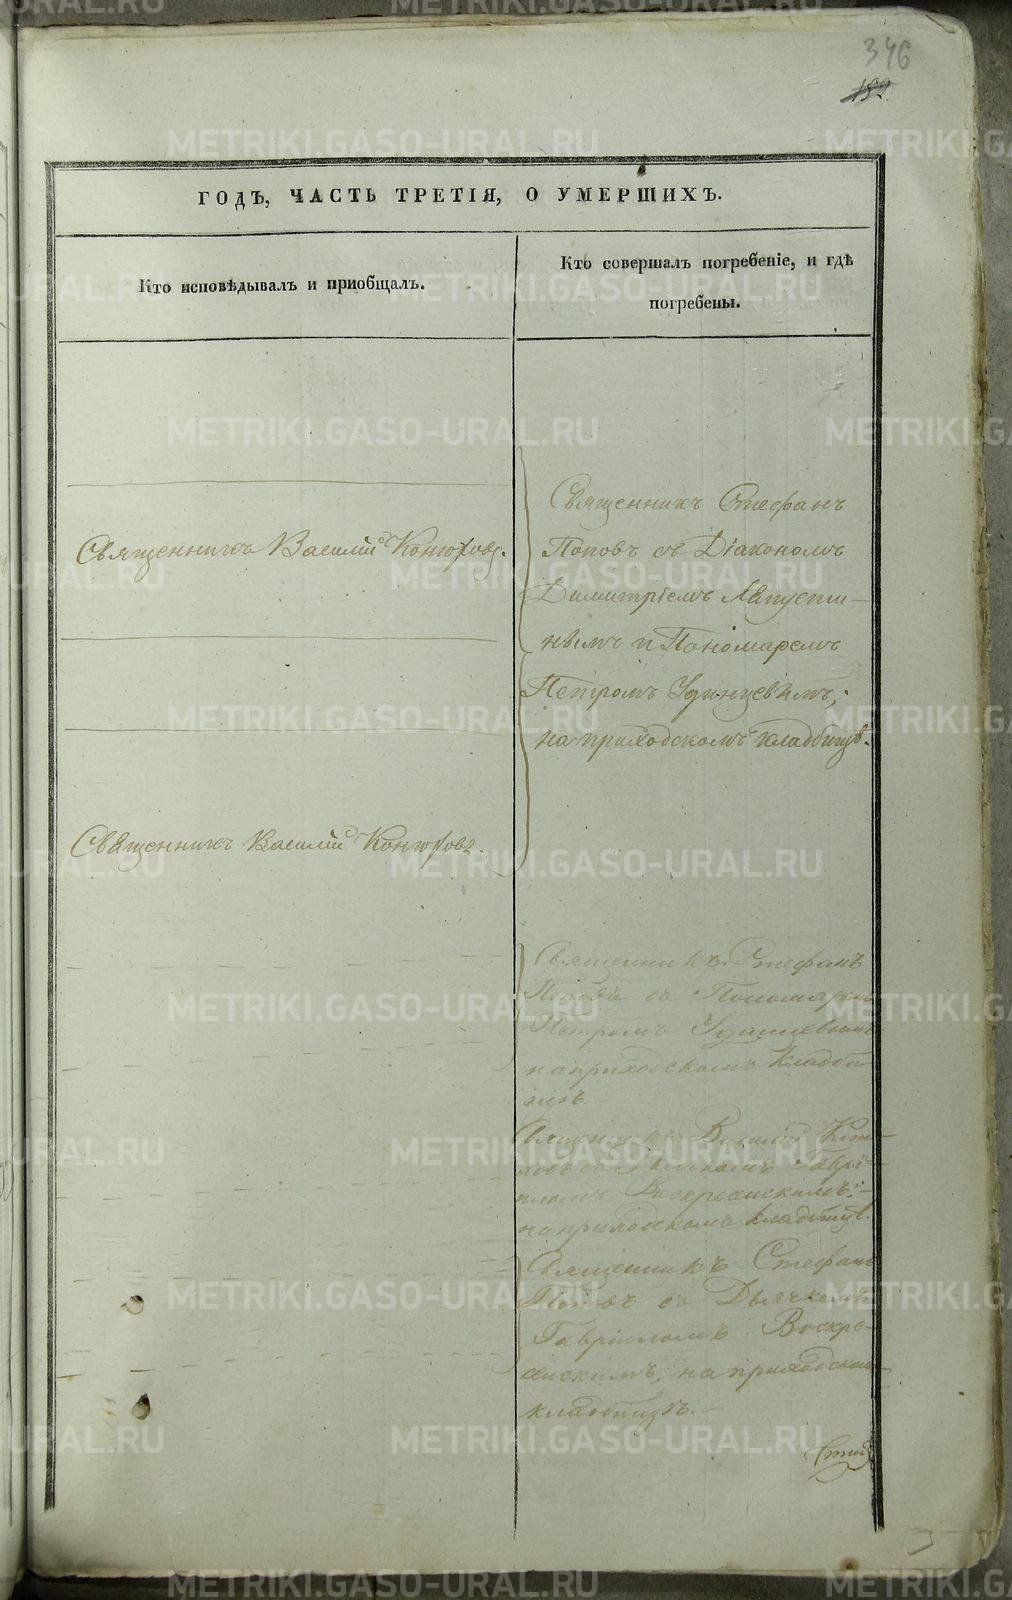 346
152.
ГОДѢ, ЧАСТЬ ТРЕТІЯ, О УМЕРШИХЪ.
Кто исповѣдывалъ и пріобщалъ.
Кто совершалъ погребеніе, и гдѣ
погребены.
Священникъ Стефанъ
Священникъ Василій
Поповъ съ Діакономъ
Димитріемъ
нымъ и Пономаремъ
Петромъ Удинцевымъ,
на приходскомъ кладбищѣ.
Священникъ Василій
Священникъ Стефанъ
Поповъ съ Пономаремъ
Петромъ Удинцевымъ
на приходскомъ кладби
щѣ.
Священникъ Василій
Гаврі
иломъ Воскресенскимъ
на приходскомъ кладбищѣ.
Священникъ Стефанъ
Поповъ съ Дьячкомъ
Гавріиломъ Воскре-
сенскимъ, на приходскомъ
кладбищѣ.
METRIKI.GASO-URAL.RU